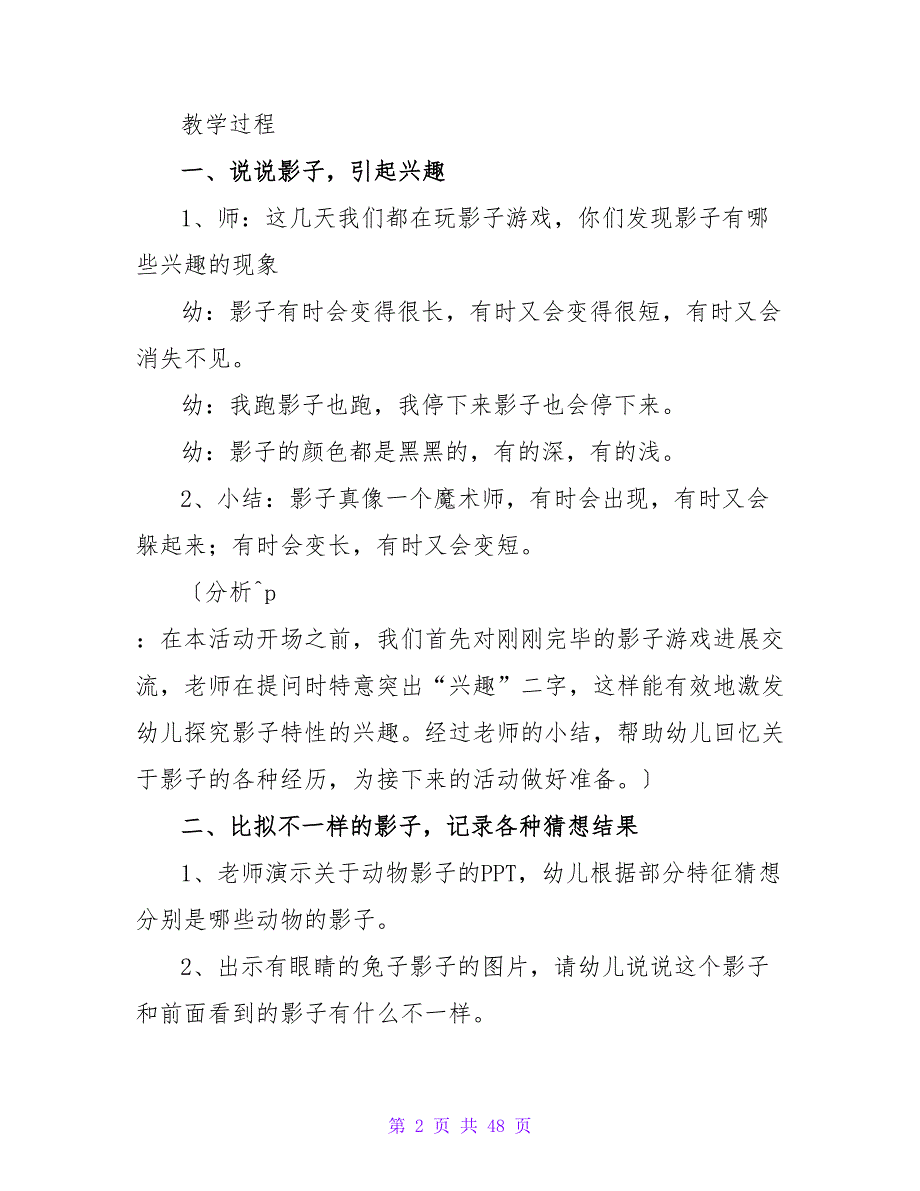 教学过程
一、说说影子，引起兴趣
1、师：这几天我们都在玩影子游戏，你们发现影子有哪
些兴趣的现象
幼：影子有时会变得很长，有时又会变得很短，有时又会
消失不见。
幼：我跑影子也跑，我停下来影子也会停下来。
幼：影子的颜色都是黑黑的，有的深，有的浅。
2、小结：影子真像一个魔术师，有时会出现，有时又会
躲起来；有时会变长，有时又会变短。
〔分析^p
：在本活动开场之前，我们首先对刚刚完毕的影子游戏进展交
流，老师在提问时特意突出“兴趣”二字，这样能有效地激发
幼儿探究影子特性的兴趣。经过老师的小结，帮助幼儿回忆关
于影子的各种经历，为接下来的活动做好准备。〕
二、比拟不一样的影子，记录各种猜想结果
1、老师演示关于动物影子的PPT，幼儿根据部分特征猜想
分别是哪些动物的影子。
2、出示有眼睛的兔子影子的图片，请幼儿说说这个影子
和前面看到的影子有什么不一样。
第 2 页 共 48 页